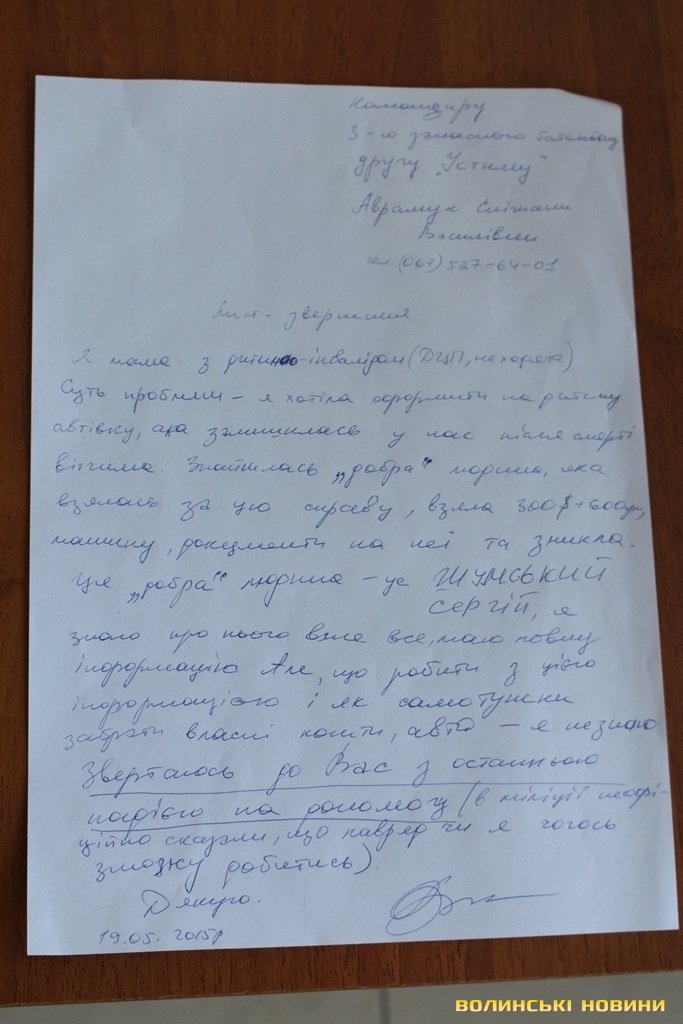 Командиру
3-го запасного батальйону
другу "Устиму"
Аврамук Сніжани
Василівни
тел. (067) 527-64-01
Лист-звернення
Я мама з дитиною-інвалідом (ДЦП, не ходяча)
Суть проблеми – я хотіла оформити на дитину
автівку, яка залишилась у нас після смерті
вітчима. Знайшлась „добра" людина, яка
взялась за цю справу, взяла 300$ + 600грн,
машину, документи на неї та зникла.
Ця „добра" людина – це ШУМСЬКИЙ
СЕРГІЙ, я
знаю про нього вже все, маю повну
інформацію Але, що робити з цією
інформацією і як самотужки
забрати власні кошти, авто – я не знаю
Звертаюсь до Вас з останньою
надією на допомогу (в міліції неофі-
ційно сказали, що навряд чи я чогось
зможу добитись).
Дякую.
19.05.2015р.
ВОЛИНСЬКІ НОВИНИ